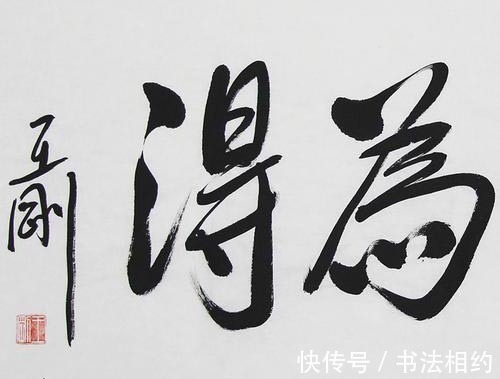 為得
王剛
快传号 / 书法相约